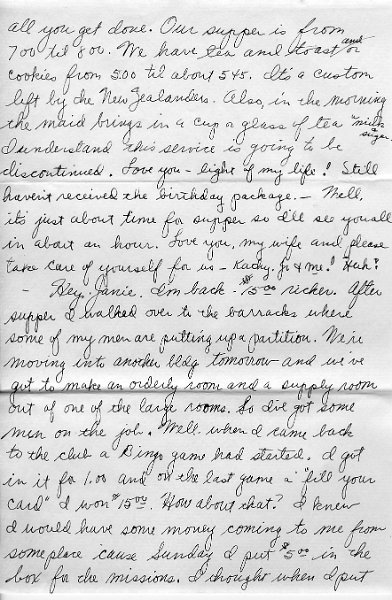 all you get done. Our supper is from
7:00 til 8:00. We have tea and toast and or
cookies from 5:00 til about 5:45. It's a custom
left by the New Zealanders. Also, in the morning
the maid brings in a cup or glass of tea "milk sugar.
I understand this service is going to be
discontinued. Love you - light of my life! Still
haven't received the birthday package. - Well,
it's just about time for supper so I'll see you all
in about an hour. Love you, my wife and please
take care of yourself for us - Kathy, Jr & me! Huh?
- Hey, Janie. I'm back - $15.00 richer. After
supper I walked over to the barracks where
some of my men are putting up a partition. We're
moving into another bldg tomorrow and we've
got to make an orderly room and a supply room
out of one of the large rooms. So I've got some
men on the job. Well when I came back
to the club a Bingo game had started. I got
in it for 1.00 and on the last game a "fill your
card" I won $15.00. How about that? I knew
I would have some money coming to me from
someplace 'cause Sunday I put $5.00 in the
box for the missions. I thought when I put